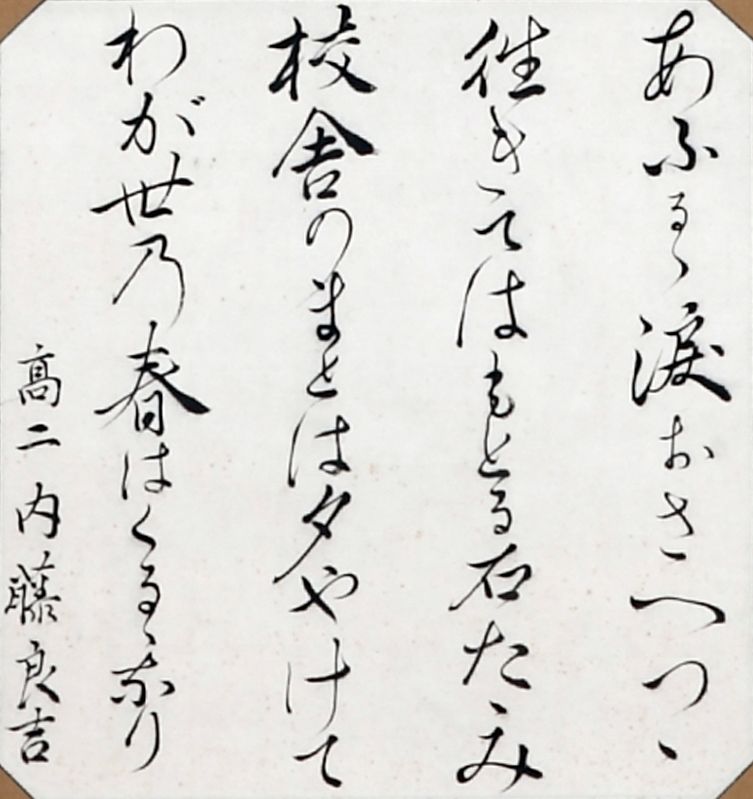 あふるゝ涙おさへつゝ
往きてはもとる石たゝみ
校舎のまとは夕やけて
わが世乃春はくるゝなり
高二内藤良吉